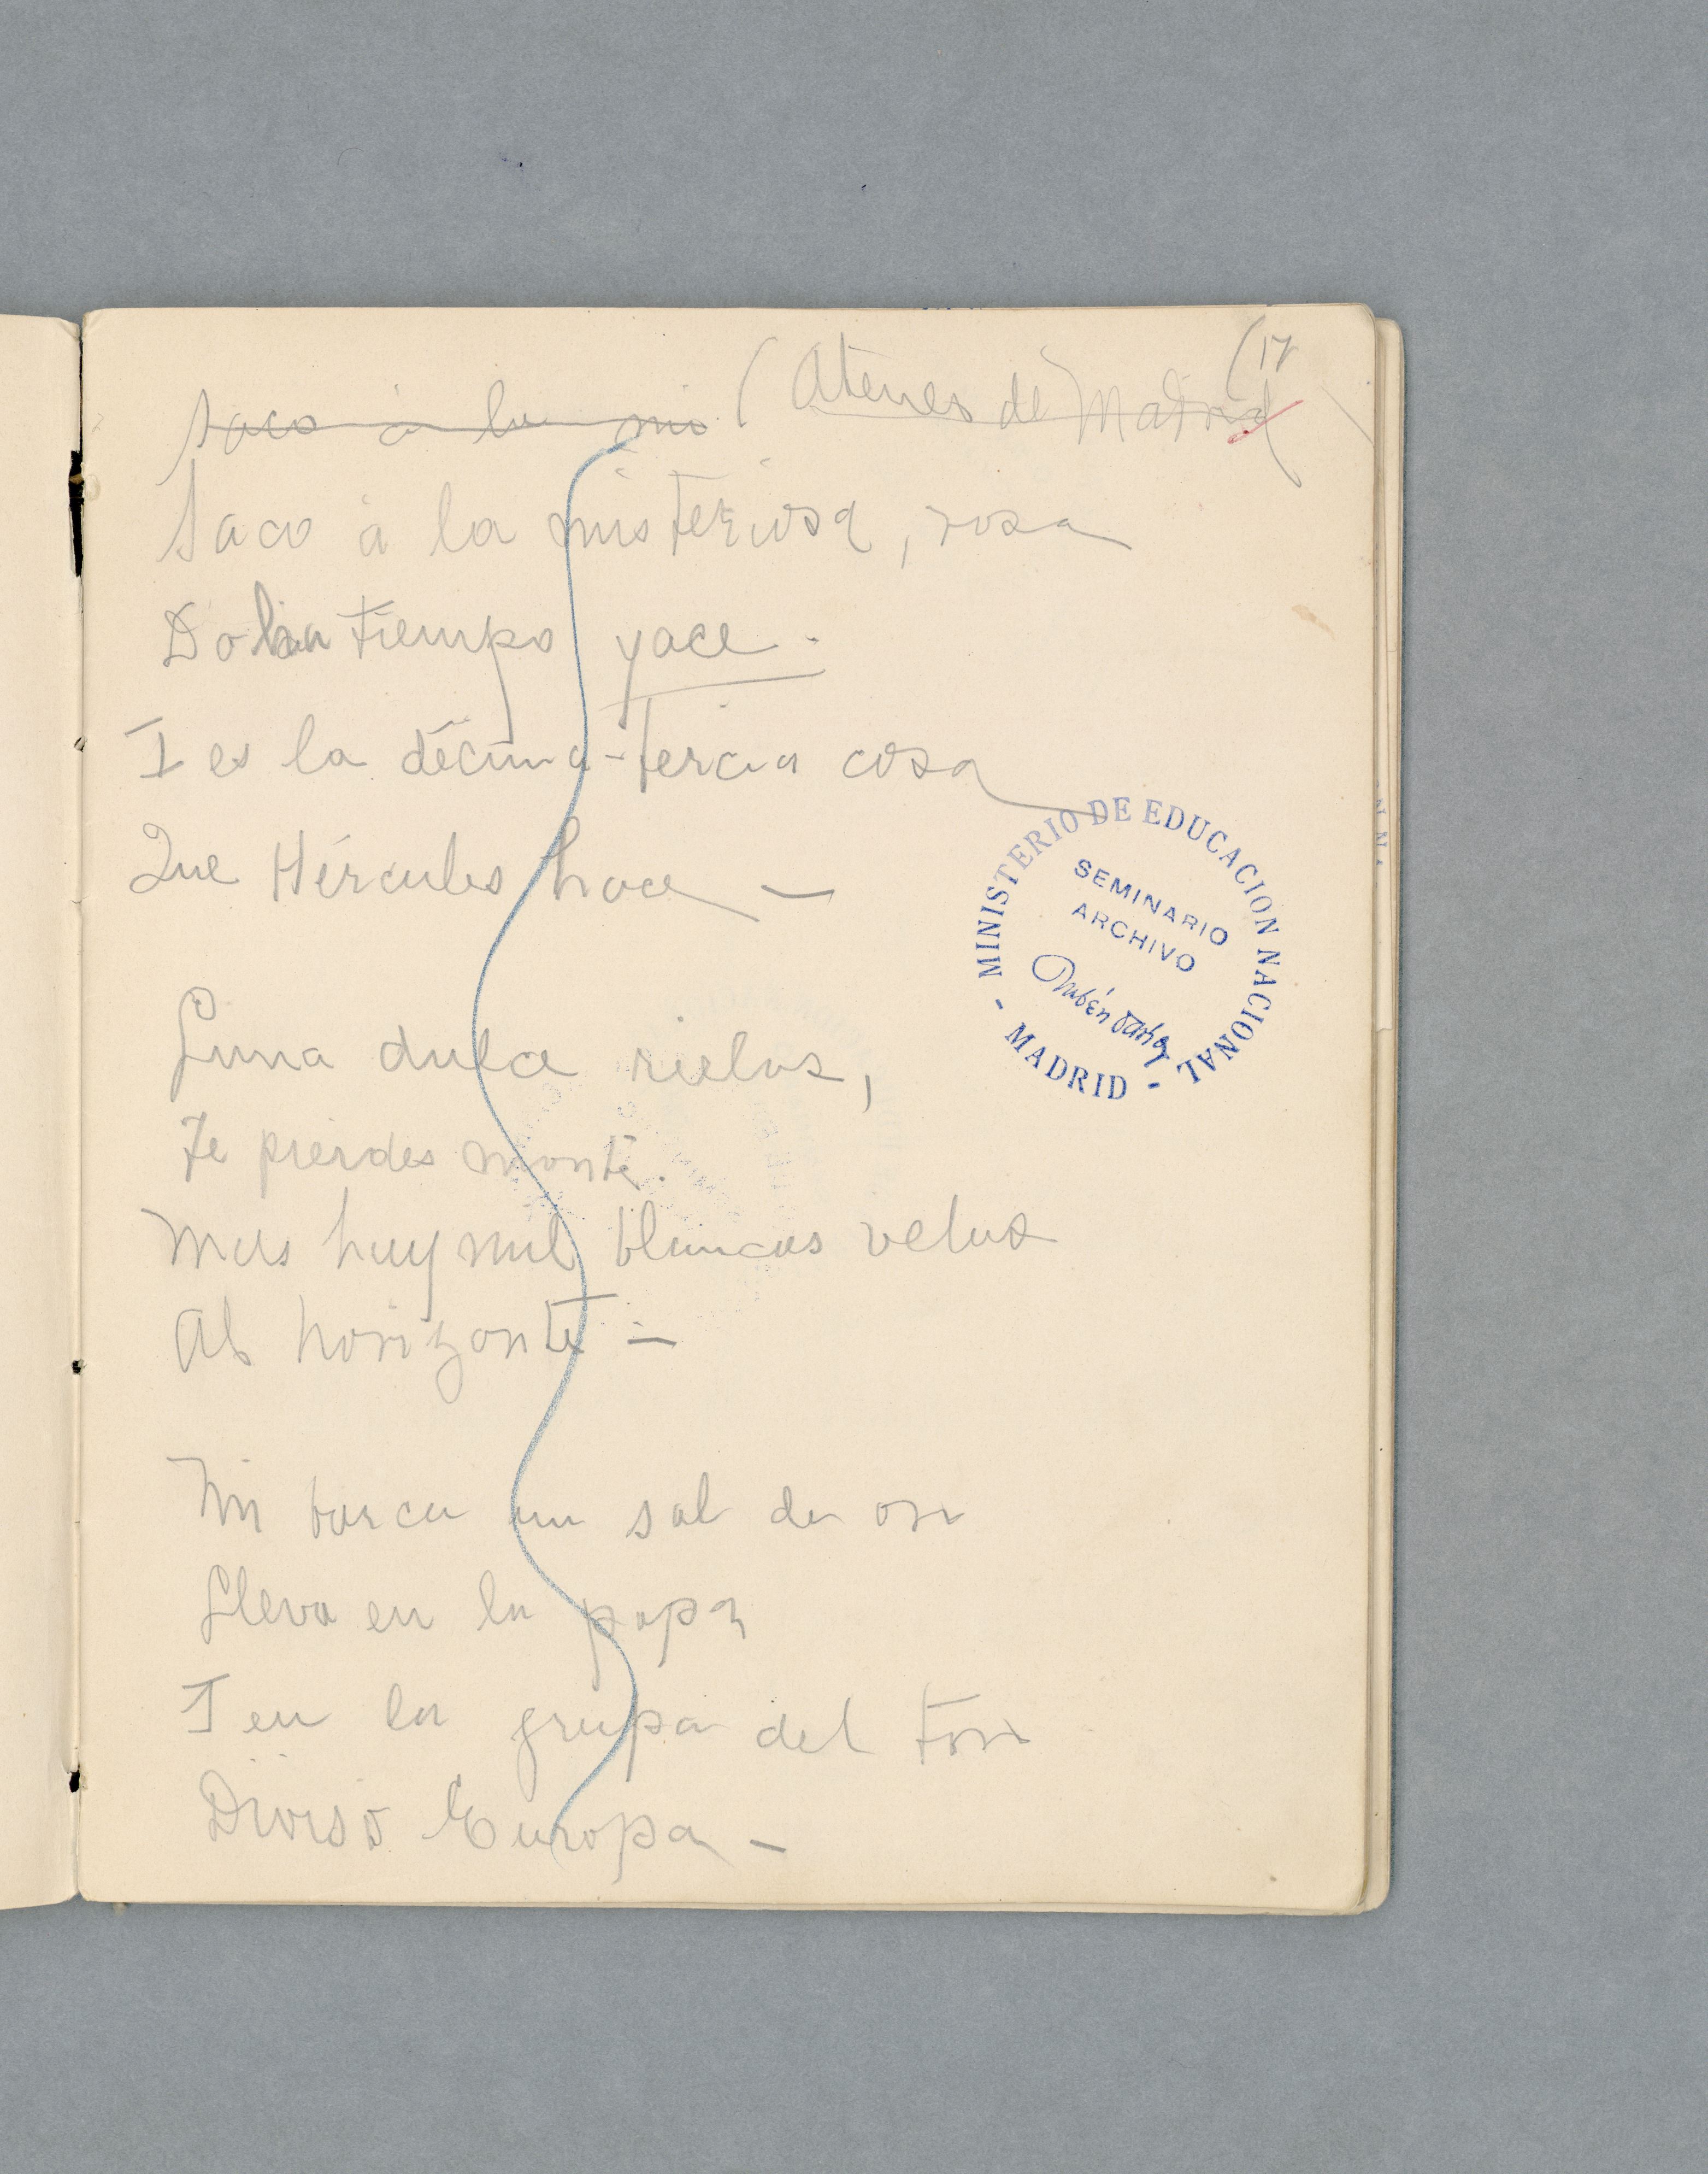 (17
saco à la mi (Ateneo de Madrid)
Saco à la misteriosa, rosa
Do ha tiempo yace.
I es la décima-tercia cosa
Que Hércules hace —
MINISTERIO DE EDUCACION NACIONAL - MADRID -
SEMINARIO
ARCHIVO
Rubén Darío
Luna dulce rielas,
Te pierdes monte.
Mas hay mil blancas velas
Al horizonte —
Mi barca un sol de oro
Lleva en la popa
I en la grupa del toro
Diviso Europa —